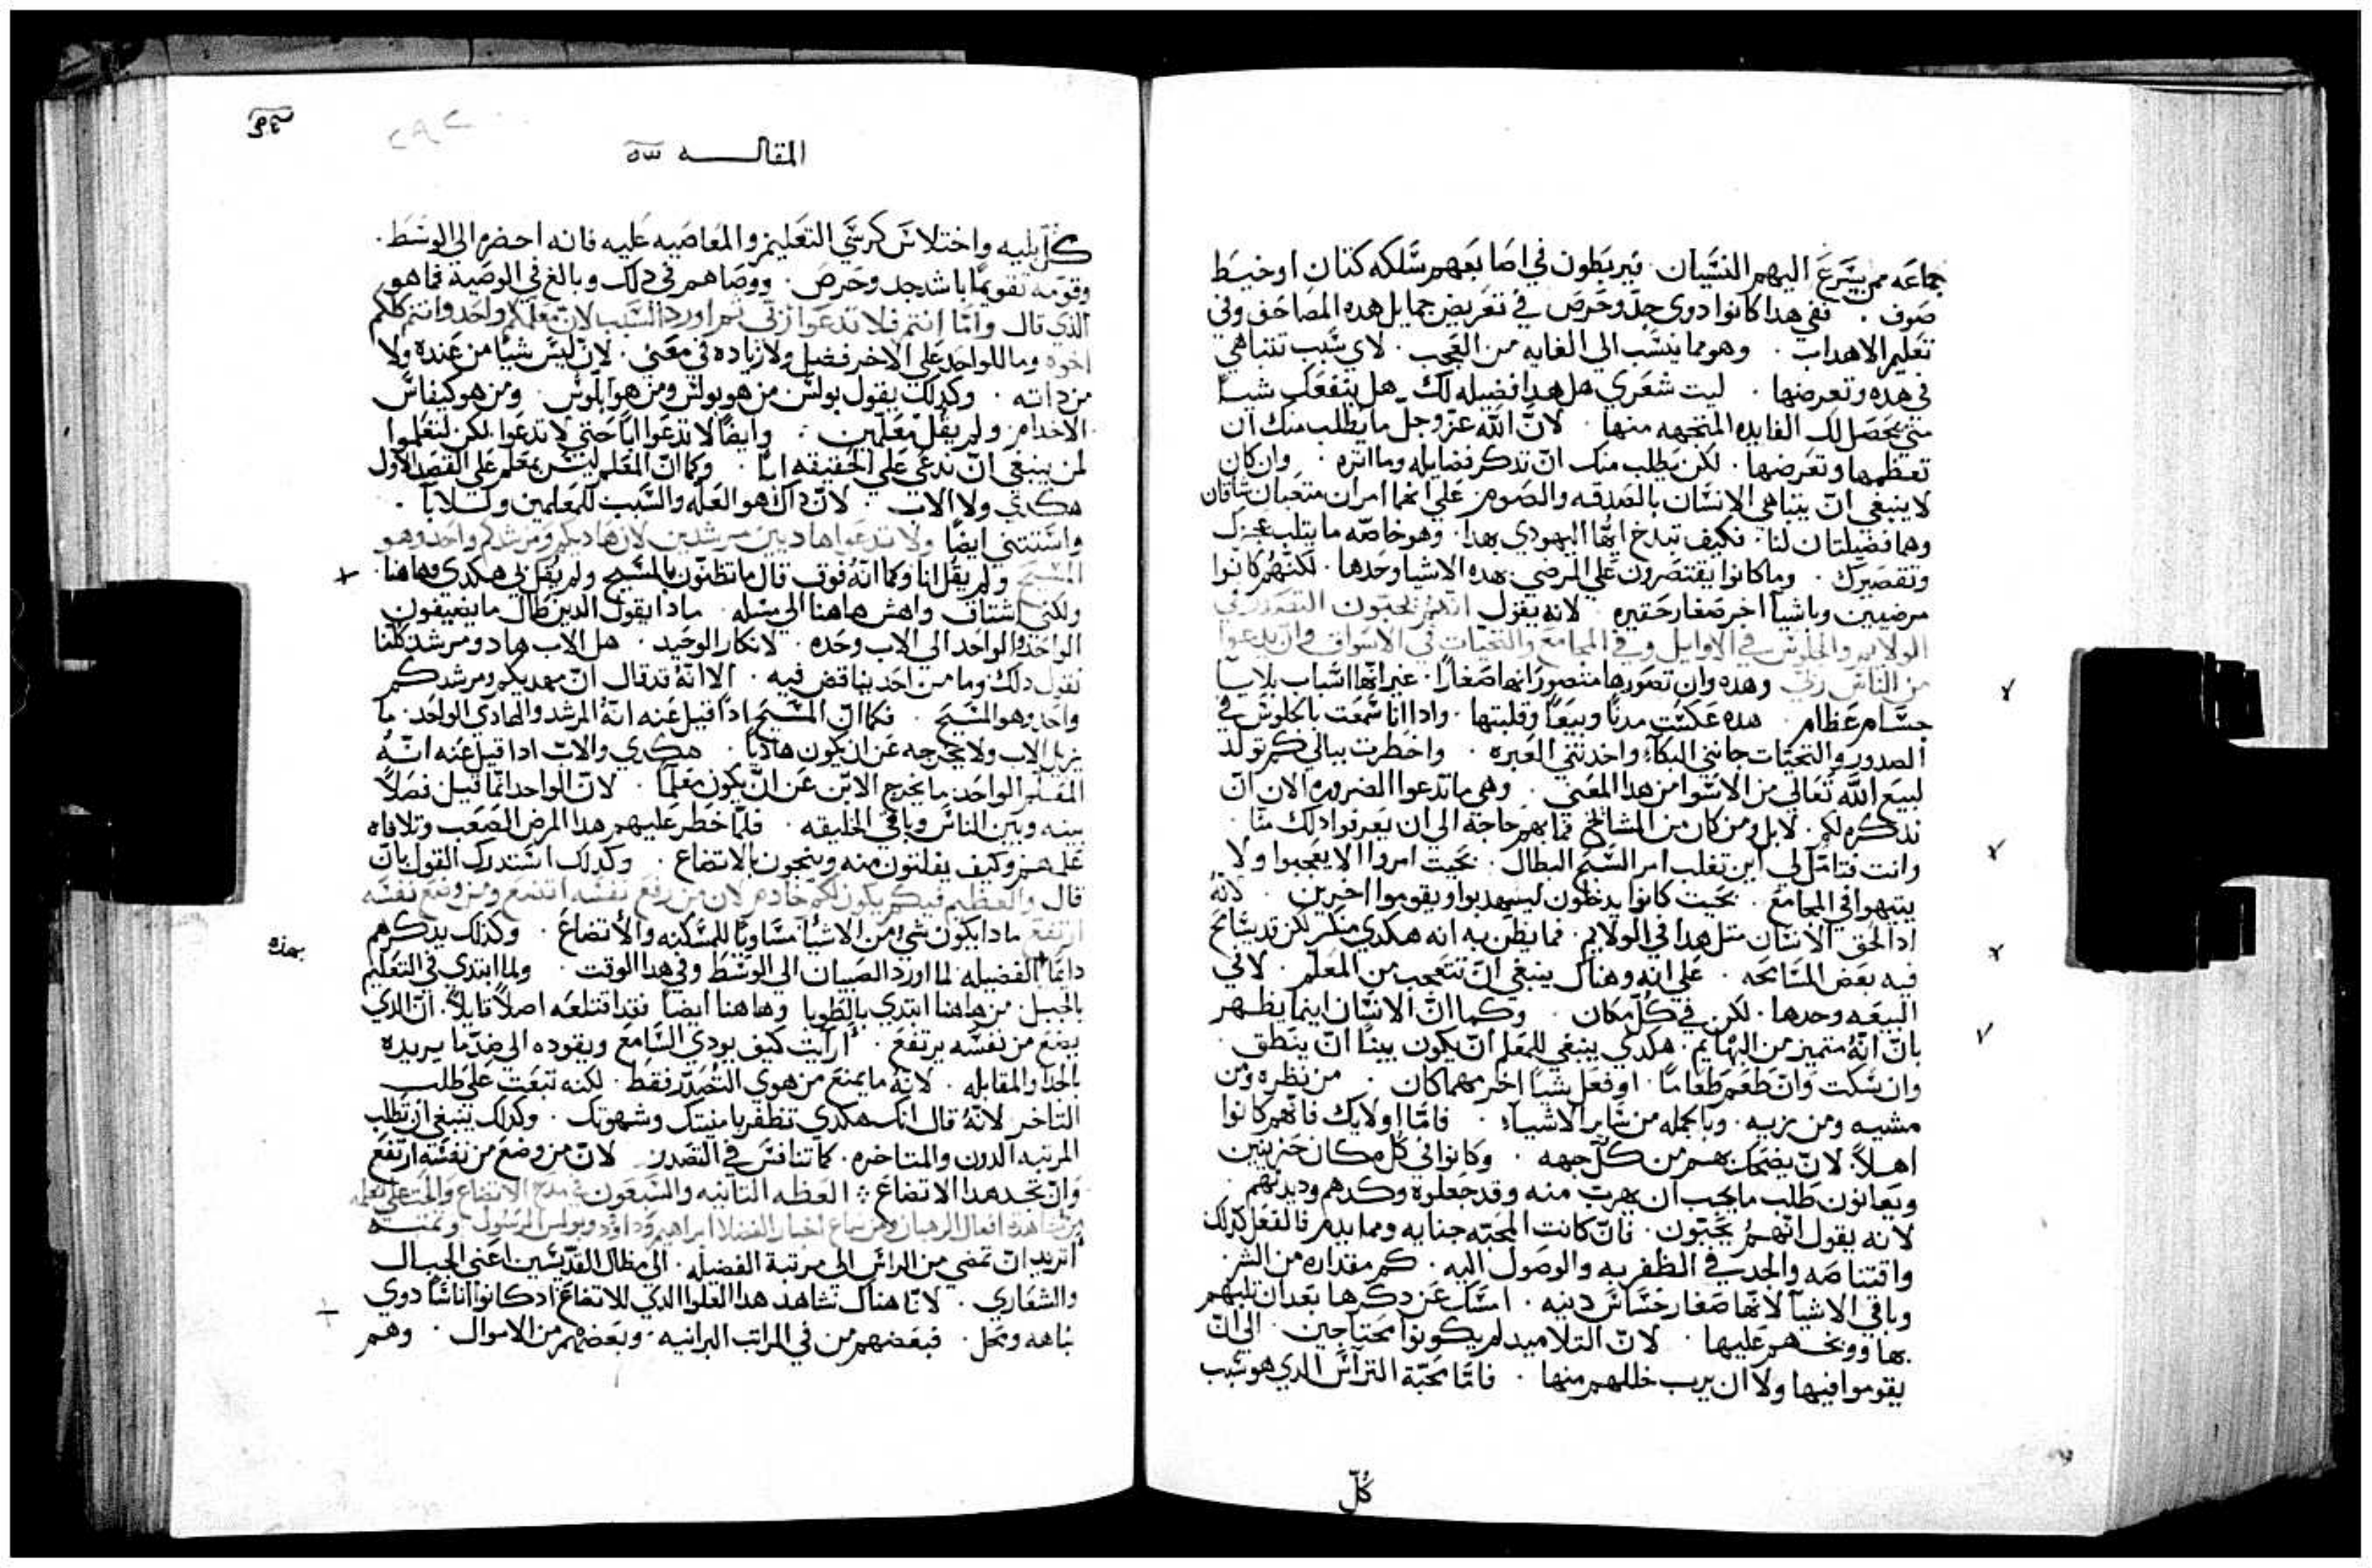 جماعه ممن يسرع اليهم النسيان . فيربطون في اصابعهم سلكه كتان او خيط
صوف . ففي هدا كانوا دوي جد وحرص في تعريض حمايل هده المصاحف وفي
تعظيم الاهداب . وهو مما ينسب الي الغايه من العجب . لاي سبب تتباهي
في هده وتعرضها . ليت شعري هل هدا فضيله لك هل ينفعك شيا
متي يحصل لك الفايده المتجهه منها . لان الله عز وجل ما يطلب منك ان
تعظمها وتعرضها . لكن يطلب منك ان تدكر فضايله وماثره . وان كان
لا ينبغي ان يتباهي الانسان بالصدقه والصوم علي انهما امران متعبان شاقان
وهما فضيلتان لنا . فكيف تبدخ ايها اليهودي بهدا . وهو خاصه ما يتلب عجزك
وتقصيرك . وما كانوا يقتصرون علي المرضي بهده الاشيا وحدها . لكنهم كانوا
مرضيين وباشيا اخر صغار حقيره لانه يقول انهم يحبون التصدر في
الولايم والجلوس في الاوايل وفي المجامع والتحيات في الاسواق وان يدعوا
من الناس ربي وهده وان تصورها متصورا انها صغارا . غير انها اسباب بلايا
جسام عظام هده عكست مدنا وبيعا وقلبتها . وادا انا سمعت بالجلوس في
الصدور والتحيات جاني البكاء واخدتني العبره . واخطرت ببالي كم تولد
لبيع الله تعالي من الاسوا من هدا المعني . وهي ما تدعوا الضروره الان ان
ندكره لكم . لابل ومن كان من المشايخ فما بهم حاجه الي ان يعرفوا دلك منا .
وانت فتامل لي اين تغلب امر السبح البطال . بحيت امروا الا يعجبوا ولا
يتيهوا في المجامع . بحيت كانوا يدخلون ليتهدبوا ويقوموا اخرين . لانه
ادا لحق الانسان متل هدا في الولايم . فما يظن به انه هكدي منكر لكن قد يسامح
فيه بعض المسامحه . علي انه وهناك ينبغي ان تتعجب من المعلم . لا في
البيعه وحدها . لكن في كل مكان . وكما ان الانسان اينما يظهر
بان انه متميز من البهايم . هكدي ينبغي للمعلم ان يكون بينا ان ينطق .
وان سكت وان طعم طعاما . او فعل شيا اخر مهما كان . من نظره ومن
مشيه ومن زيه . وبالجمله من ساير الاشياء . فاما اولايك فانهم كانوا
اهلا . لان يضحك بهم من كل جهه . وكانوا في كل مكان حزينين
ويعانون طلب ما يجب ان يهرب منه وقد جعلوه وكدهم وديدنهم .
لانه يقول انهم يحبون . فان كانت المحبه جنايه ومما يدم فالفعل كدلك
واقتناصه والجد في الظفر به والوصول اليه . كم مقداره من الشر
وباقي الاشيا لانها صغار خساس دنيه . امسك عن دكرها بعد ان تلبهم
بها ووبخهم عليها . لان التلاميد لم يكونوا محتاجين . الي ان
يقوموا فيها ولا ان يرب خللهم منها . فاما محبة التراس الدي هو سبب
كل
المقاله
كل بليه واختلاس كرسي التعليم والمعاصيه عليه فانه احضره الي الوسط .
وقومه تقويما باشد جد وحرص . ووصاهم في دلك وبالغ في الوصيه فما هو
الدي قال واما انتم فلا تدعوا ربي ثم اورد السبب لان معلمكم واحد وانتم كلكم
اخوه وما للواحد علي الاخر فضل ولا زياده في معني . لان ليس شيا من عنده ولا
من داته . وكدلك يقول بولس من هو بولس ومن هو ابلوس . ومن هو كيفاس
الا خدام . ولم يقل معلمين . وايضا لا تدعوا ابا حتي لا تدعوا لكن لتعلموا
لمن ينبغي ان ندعي علي الحقيقه ابا . وكما ان المعلم ليس بمعلم علي القصد الاول
هكدي ولا الاب . لان داك هو العله والسبب للمعلمين وللابا .
واستتني ايضا ولا تدعوا هاديين مرشدين لان هاديكم ومرشدكم واحد وهو
المسيح ولم يقل انا وكما انه فوق قال ما تظنون بالمسيح ولم يقل بي هكدي وهاهنا .
ولكني اشتاق واهش هاهنا الي مسله . مادا يقول الدين طال ما يضيفون
الواحد والواحد الي الاب وحده . لانكار الوحيد . هل الاب هاد ومرشد كلنا
نقول دلك وما من احد يناقض فيه . الا انه قد قال ان مهديكم ومرشدكم
واحد وهو المسيح . فكما ان المسيح ادا قيل عنه انه المرشد والهادي الواحد . ما
يزيل الاب ولا يخرجه عن ان يكون هاديا . هكدي والاب ادا قيل عنه انه
المعلم الواحد . ما يخرج الابن عن ان يكون معلما . لان الواحد انما قيل فصلا
بينه وبين الناس وباقي الخليقه . فلما خطر عليهم هدا المرض الصعب وتلافاه
علمهم وكيف يفلتون منه وينجون بالاتضاع . وكدلك استدرك القول بان
قال والعظيم فيكم يكون لكم خادم لان من رفع نفسه اتضع ومن وضع نفسه
ارتفع مادا يكون شي من الاشيا مساويا للمسكنه والاتضاع . وكدلك يدكرهم
بهده
دايما الفضيله لما اورد الصبيان الي الوسط وفي هدا الوقت . ولما ابتدي في التعليم
بالجبل من هاهنا ابتدي بالطوبا وهاهنا ايضا فقد اقتلعه اصلا قايلا . ان الدي
يضع من نفسه يرتفع . ارايت كيف يودي السامع ويقوده الي ضد ما يريده
بالحدا والمقابله . لانه ما يمنع من هوي التصدر فقط . لكنه تبعت علي طلب
التاخر لانه قال انك هكدي تظفر بامنيتك وشهوتك . وكدلك ينبغي ان تطلب
المرتبه الدون والمتاخره . كما تنافس في التصدر لان من وضع من نفسه ارتفع
وان تجد هدا الاتضاع العظه التانيه والسبعون في مدح الاتضاع والحت علي تعلمه
من مشاهدة افعال الرهبان ومن سماع اخبار الفضلا ابراهيم وداود وبولس الرسول
اتريد ان تمضي من الراس الي مرتبة الفضيله . الي مظال القديسين اعني الجبال
والشعاري . لانا هناك نشاهد هدا العلوا الدي للاتضاع ادا كانوا اناسا دوي
نباهه ومحل . فبعضهم من في المراتب البرانيه . وبعضهم من الاموال . وهم